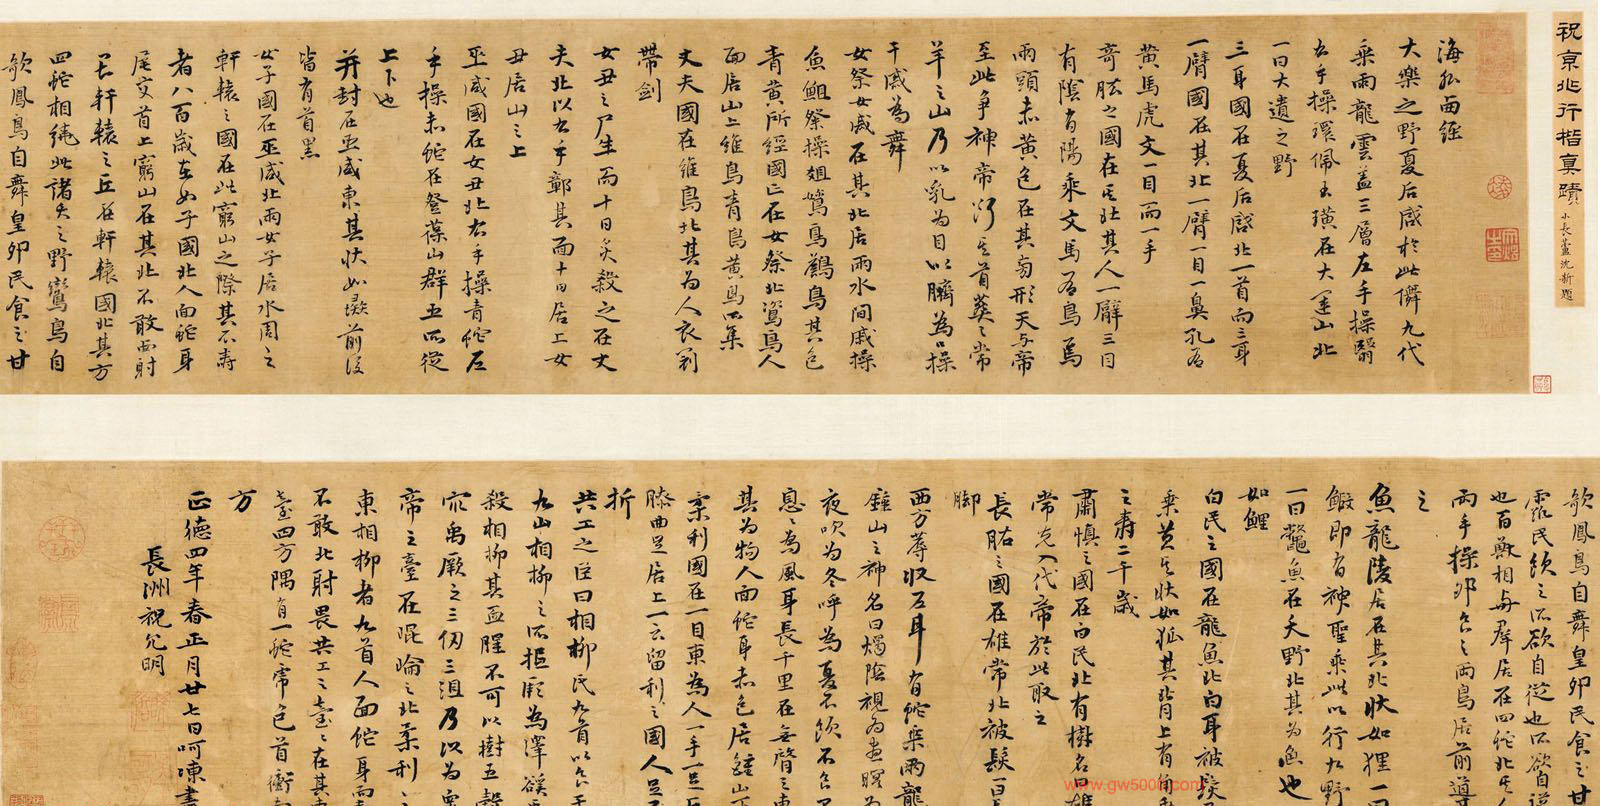 祝京兆行楷真蹟 小長蘆沈新題
海外西經
大樂之野夏后啟於此儛九代
乘兩龍雲蓋三層左手操翳
右手操環佩玉璜在大運山北
一曰大遺之野
三身國在夏后啟北一首而三身
一臂國在其北一臂一目一鼻孔有
黃馬虎文一目而一手
奇肱之國在其北其人一臂三目
有陰有陽乘文馬有鳥焉
兩頭赤黃色在其旁形天與帝
至此爭神帝斷其首葬之常
羊之山乃以乳為目以臍為口操
干戚為舞
女祭女戚在其北居兩水間戚操
魚䱇祭操俎鶿鳥鶬鳥其色
青黃所經國亡在女祭北鶿鳥人
面居山上維鳥青鳥黃鳥所集
丈夫國在維鳥北其為人衣劍
帶劍
女丑之尸生而十日炙殺之在丈
夫北以右手鄣其面十日居上女
丑居山之上
巫咸國在女丑北右手操青蛇左
手操赤蛇在登葆山群巫所從
上下也
并封在巫咸東其狀如彘前後
皆有首黑
女子國在巫咸北兩女子居水周之
軒轅之國在此窮山之際其不壽
者八百歲在女子國北人面蛇身
尾交首上窮山在其北不敢西射
畏軒轅之丘在軒轅國北其方
四蛇相繞此諸夭之野鸞鳥自
歌鳳鳥自舞皇卵民食之甘
歌鳳鳥自舞皇卵民食之甘
露民飲之所欲自從也
也百獸相與群居在四蛇北其人
兩手操卵食之兩鳥居前導
之
魚龍陵居在其北狀如狸一曰
鰕即有神聖乘此以行九野
一曰鼈魚在夭野北其為魚也
如鯉
白民之國在龍魚北白身被髮
乘黃其狀如狐其背上有角
之壽二千歲
肅慎之國在白民北有樹名曰雄
常先入代帝於此取之
長股之國在雄常北被髮一曰長
腳
西方蓐收左耳有蛇乘兩龍
鍾山之神名曰燭陰視為晝瞑為
夜吹為冬呼為夏不飲不食
息息為風身長千里在無䏿之東
其為物人面蛇身赤色居鍾山下
柔利國在一目東為人一手一足反
膝曲足居上一云留利之國人足
折
共工之臣曰相柳氏九首以食于
九山相柳之所抵厥為澤谿
殺相柳其血腥不可以樹五穀
禹厥之三仞三沮乃以為眾
帝之臺在崐崘之北柔利之
東相柳者九首人面蛇身而
不敢北射畏共工之臺臺在其東
臺四方隅有一蛇虎色首衝南
方
正德四年春正月廿七日呵凍書
長洲祝允明
www.gw500.com